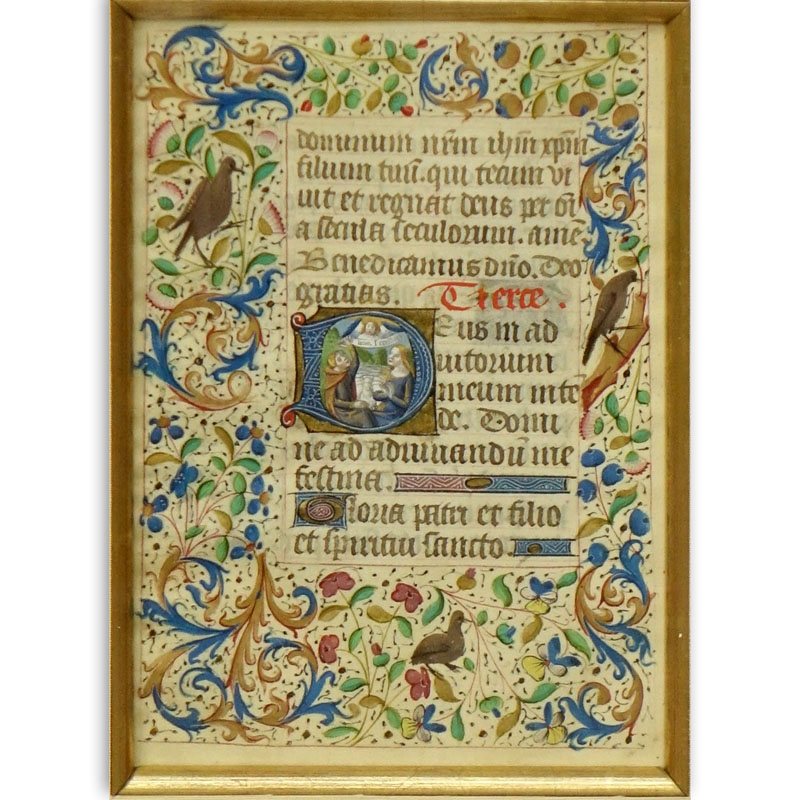 dominum nrm ihm xpm
filium tuu. qui tecum vi
uit et regnat deus per om
a secula seculorum. ame
Benedicamus dno. Deo
gratias. Tierce.
Deus in ad
iutorium
meum inte
de. Domi
ne ad adiuuandu me
festina.
Gloria patri et filio
et spiritui sancto.